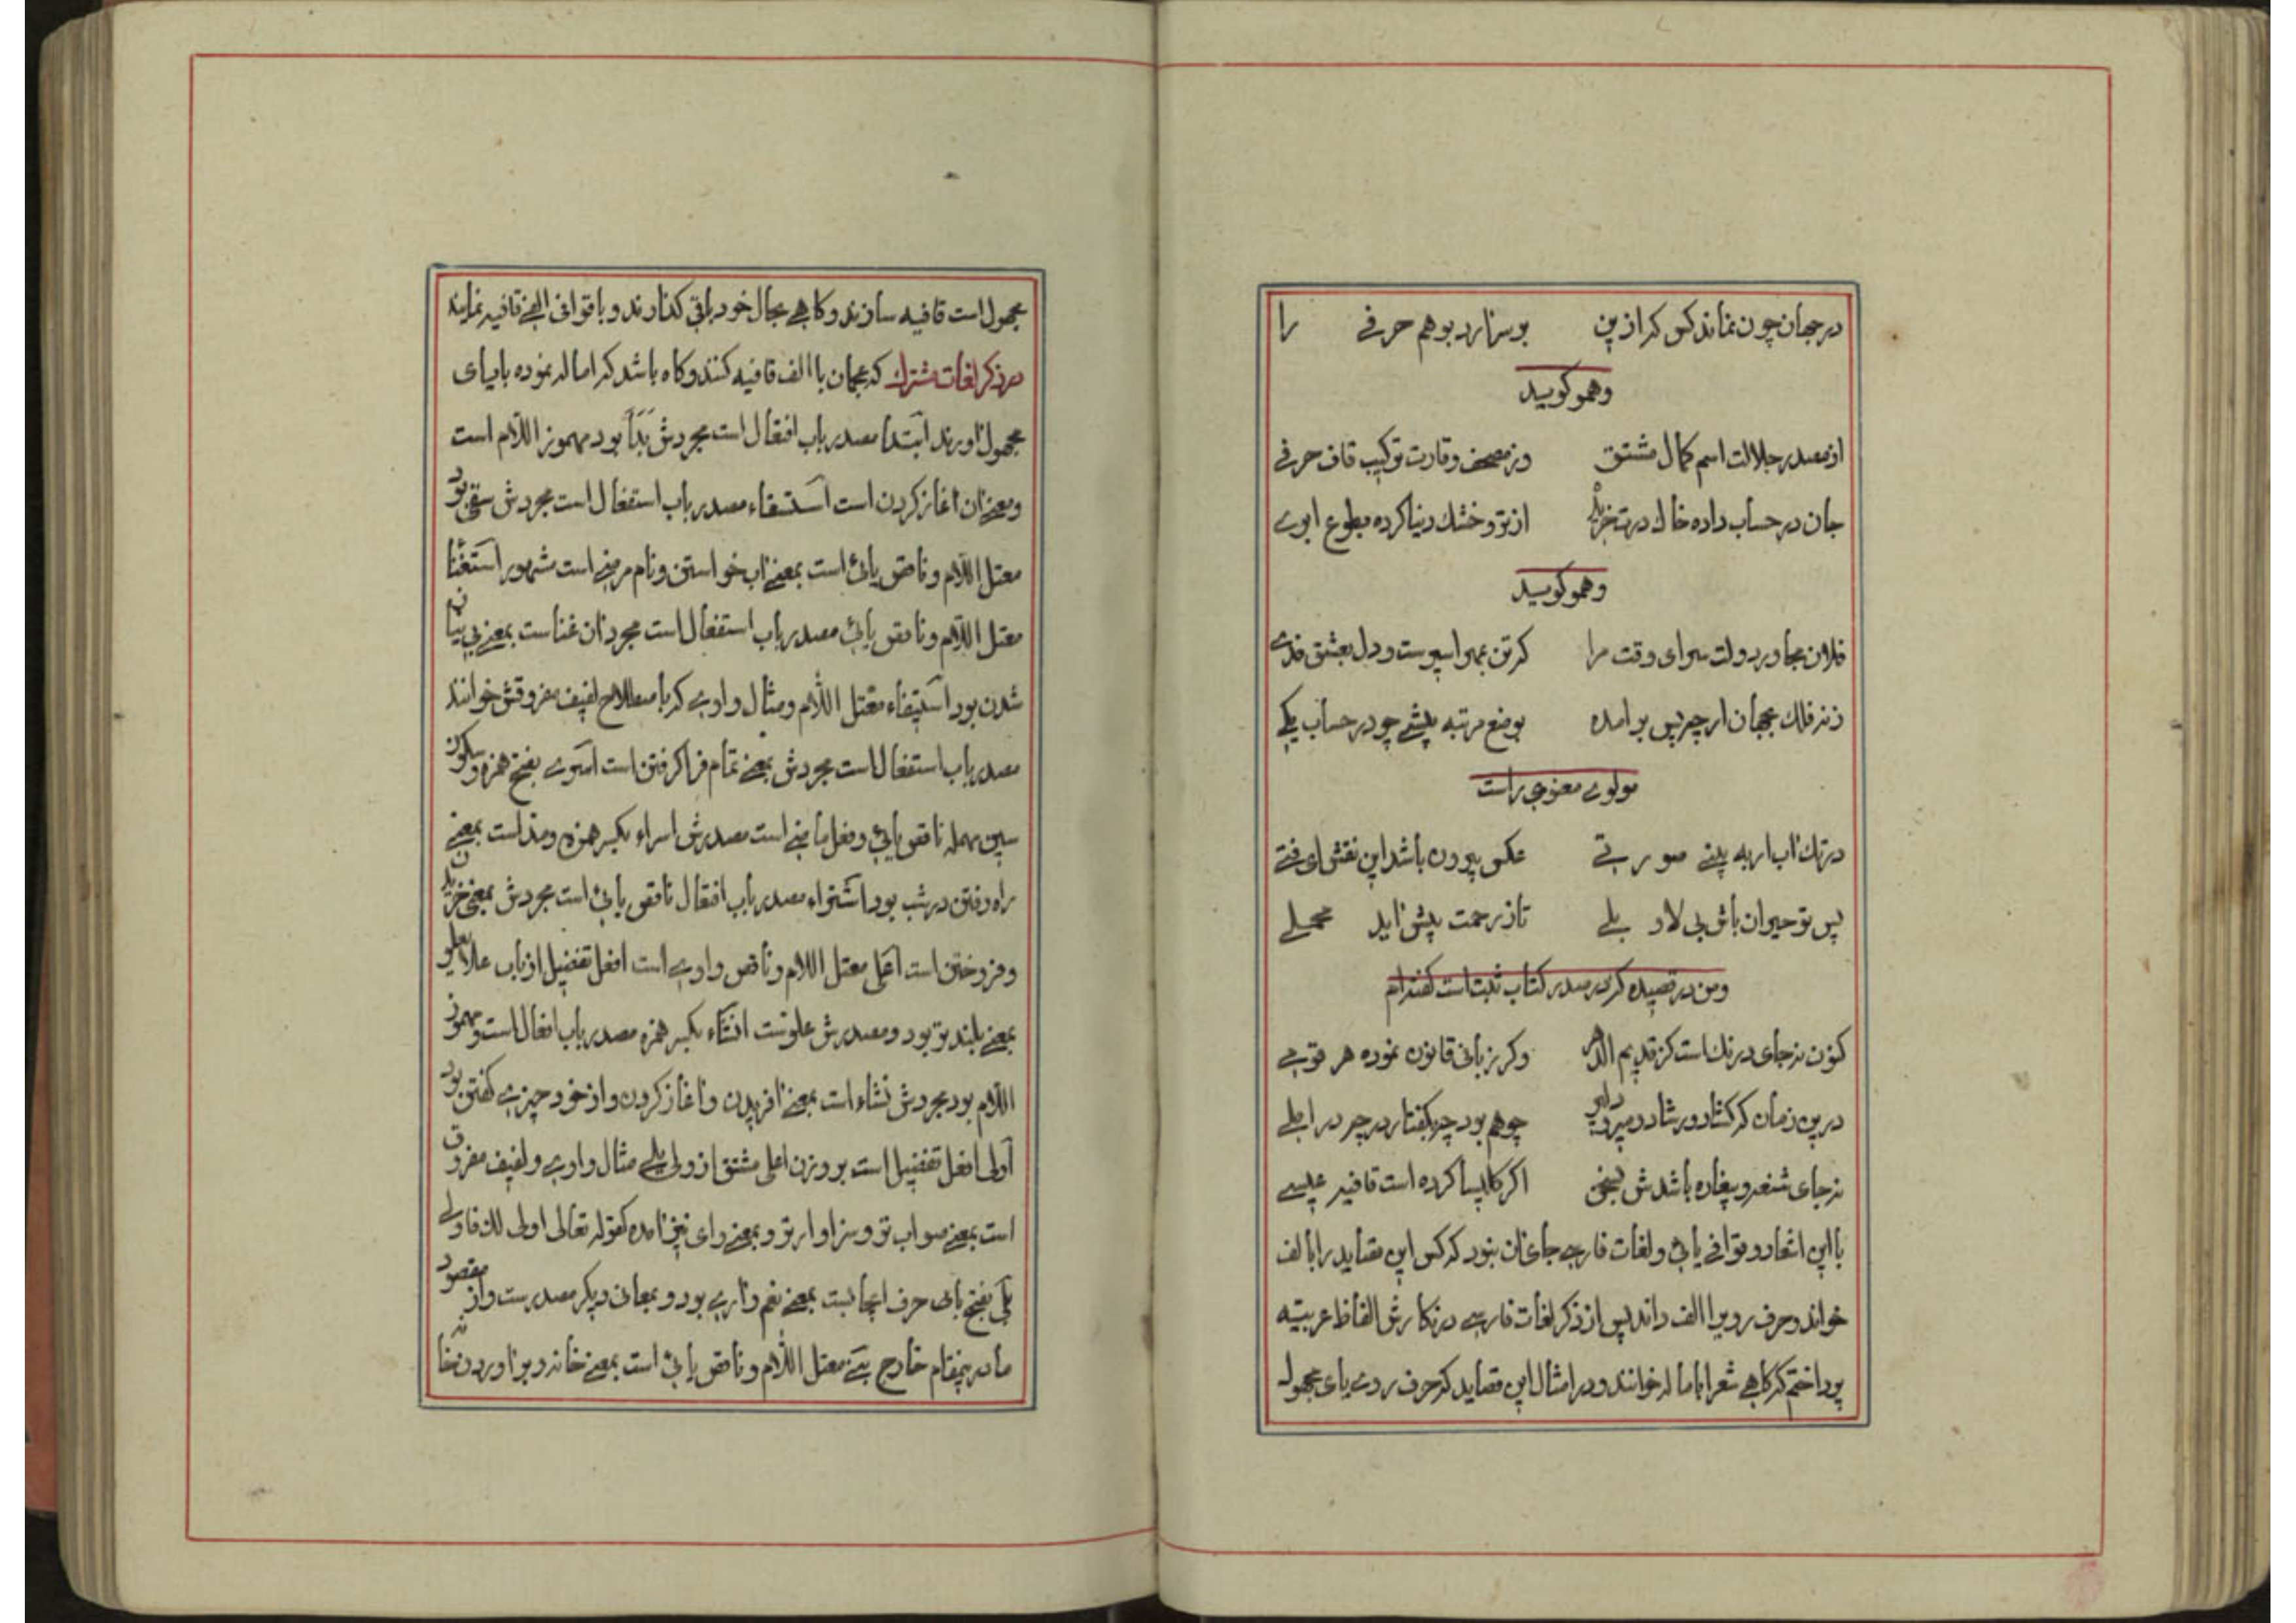 در جهان چون نماند کس که ازین بر سر ارد بوهم حرفے را
وهمو کوید
از مصدر جلالت اسم کمال مشتق وز مصحف وقارت ترکیب قاف حرفے
جان در حساب داده خاك درت از تر و خشك دنیا کرده بطوع ابرے
وهمو کوید
فلان مجاور دولت سرای وقت مرا کرتن بمهر اسیرست و دل بعشق فدے
زنر فلك بجهان ار چرپس بر امده بوضع مرتبه پیشے چو در حساب یکے
مولوے معنوی راست
در تك اب ار به پینے صورتے عکس بیرون باشد این نقش ای فتے
پس تو حیران باش بی لا و بلے تا ز رحمت پیش اید محملے
ومن در قصیده که در صدر کتاب ثبت است کفته ام
کنون نه جای درنك است کز قدیم الدهر وکر زبانی قانون نموده هر قوے
درین زمان که چوهم بود چه بکفتار در چه در املے
نه جای شنعه و بیغاره باشدش بسخن اکر کلیسا کرده است قافیه عیسے
با این اشعار و قوافے یائی و لغات فارسے جای ان نبود که کس این قصاید را با الف
خواند و حرف روی را الف داند پس از ذکر لغات فارسے در نکارش الفاظ عربیّه
پرداختم که کاهے شعرا باماله خوانند و در امثال این قصاید که حرف روے یای مجهوله
مجهول است قافیه سازند و کاهے بحال خود باقی کذارند و با قوافی الفے قافیه نمایند
در ذکر لغات مشترك که عجمان با الف قافیه کنند و کاه باشد که اماله نموده با یای
مجهول اورند ابتدا مصدر باب افتعال است مجردش بَدَأَ بود مهموز اللّام است
و معنے ان اغاز کردن است استسقاء مصدر باب استفعال است مجردش سقی بود
معتل اللّام و ناقص یائی است بمعنے اب خواستن و نام مرضے است مشهور استغنا
معتل اللّام و ناقص یائی مصدر باب استفعال است مجرد ان غناست بمعنے بی نیاز
شدن بود استیفاء معتل اللّام و مثال واوے که باصطلاح لفیف مفروقش خوانند
مصدر باب استفعال است مجردش بمعنے تمام فرا کرفتن است اسرے بفتح همزه و سکون
سین مهمله ناقص یائی و فعل ماضے است مصدرش اسراء بکسر همزه و مد است بمعنے
راه رفتن در شب بود اشتراء مصدر باب افتعال ناقص یائی است مجردش بمعنی خریدن
و فروختن است اعلی معتل اللام و ناقص واوے است افعل تفضیل از باب علا یعلو
بمعنے بلند تر بود و مصدرش علوّست انشاء بکسر همزه مصدر باب افعال است و مهموز
اللّام بود مجردش نشاء است بمعنے افریدن و اغاز کردن و از خود چیزے کفتن بود
اولی افعل تفضیل است بر وزن اعلی مشتق از ولی یلے مثال واوے و لفیف مفروق
است بمعنے صواب تر و سزاوار تر و بمعنے وای نیز امده کقوله تعالی اولی لك فاولی
بلی بفتح بای حرف ایجابست بمعنے نعم و ارے بود و بمعانی دیکر مصدرست و از مقصود
ما درینمقام خارج بنے معتل اللّام و ناقص یائی است بمعنے خانه و بر اوردن خانه